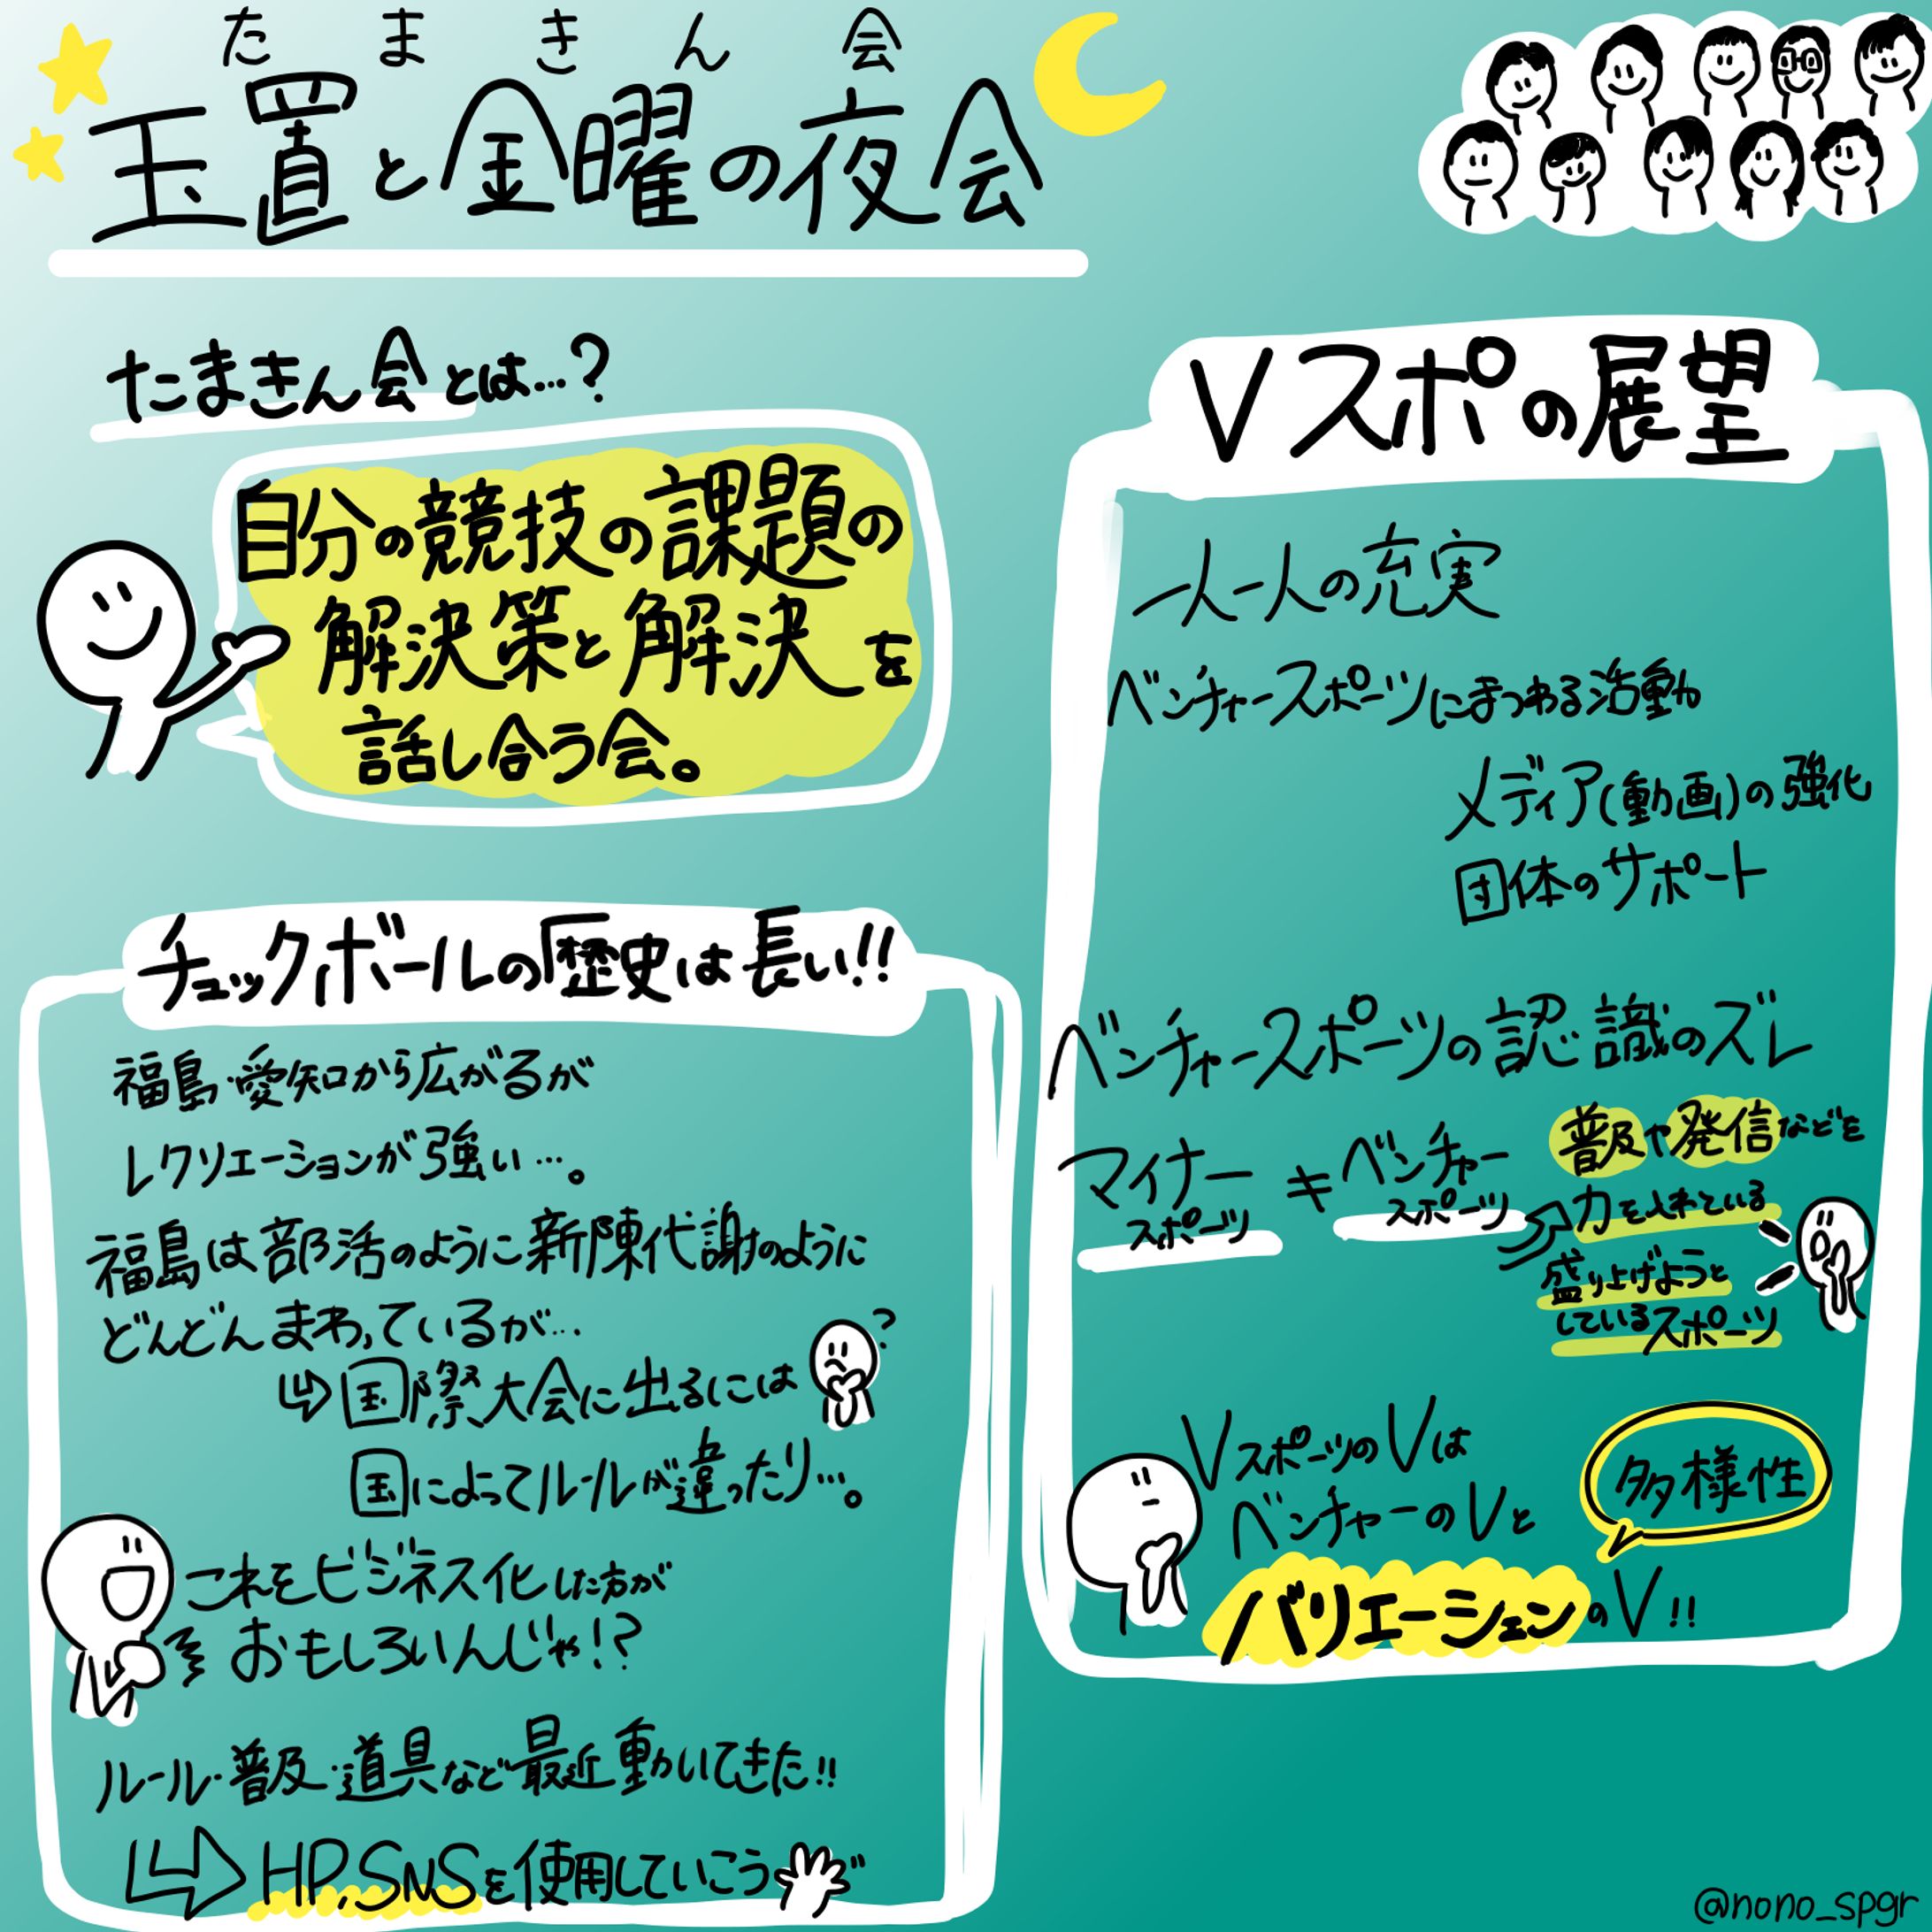 たまきん会
玉置と金曜の夜会
たまきん会とは…?
自分の競技の課題の
解決策と解決を
話し合う会。
チュックボールの歴史は長い!!
福島・愛知から広がるが
レクリエーションが強い…。
福島は部活のように新陳代謝のように
どんどんまわっているが…
国際大会に出るには
?
国によってルールが違ったり…。
これをビジネス化した方が
おもしろいんじゃ!?
ルール・普及・道具など最近動いてきた!!
HP,SNSを使用していこう
Vスポの展望
一人一人の充実
ベンチャースポーツにまつわる活動
メディア(動画)の強化
団体のサポート
ベンチャースポーツの認識のズレ
マイナースポーツ≠ベンチャースポーツ
普及や発信などを
力を入れている
盛り上げようと
しているスポーツ
VスポーツのVは
ベンチャーのVと
多様性
バリエーションのV!!
@nono_spgr